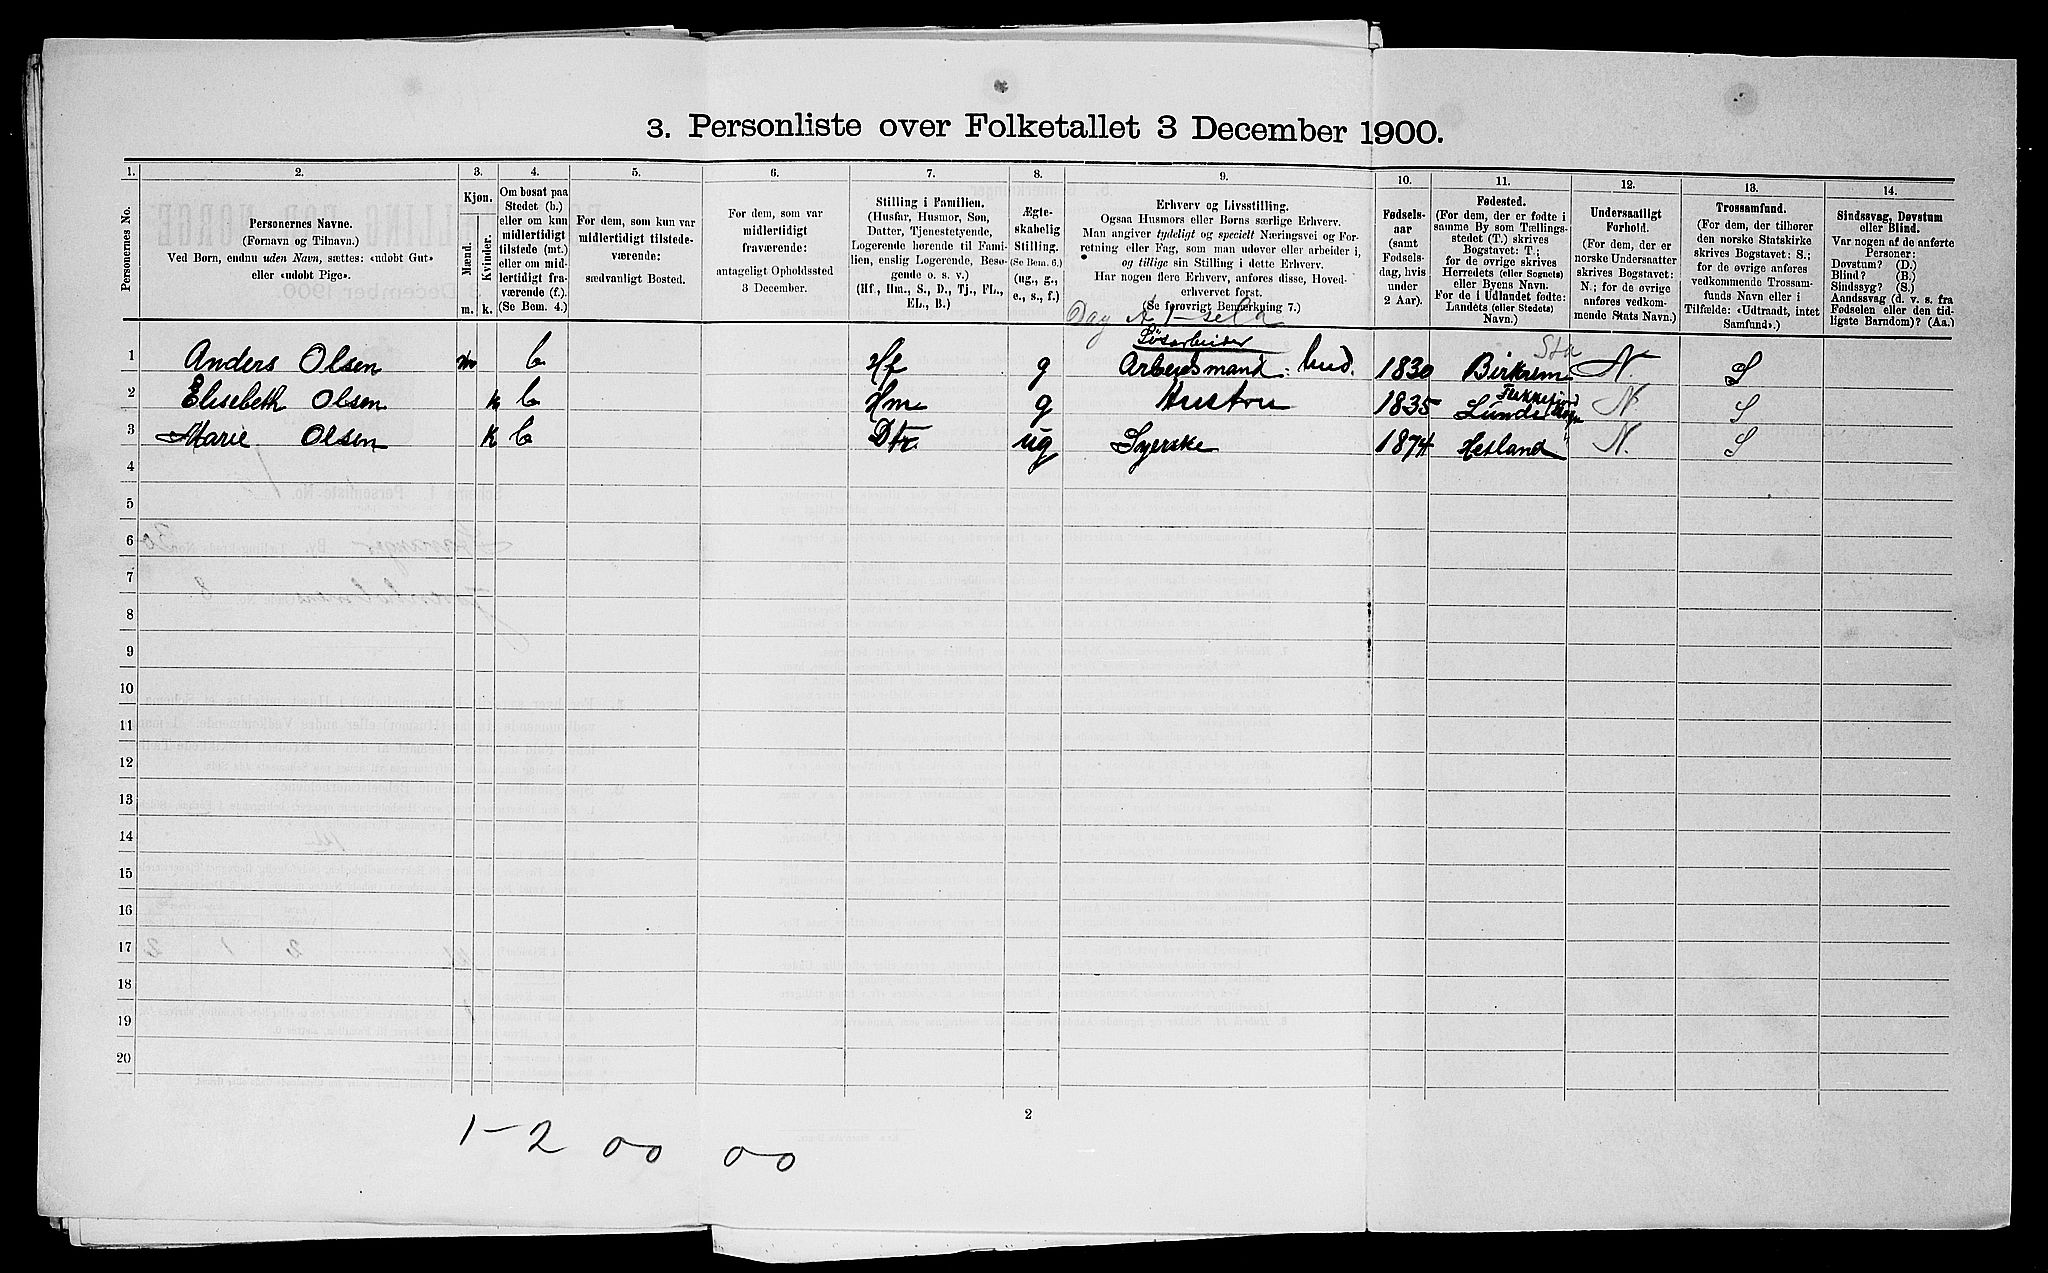 3. Personliste over Folketallet 3 December 1900.
1. 2. 3. 4. 5. 6. 7. 8. 9. 10. 11. 12. 13. 14.
Personernes No.
Personernes Navne.
(Fornavn og Tilnavn.)
Ved Børn, endnu uden Navn, sættes: «udøbt Gut»
eller «udøbt Pige».
Kjøn.
Mænd.
Kvinder.
m. k.
Om bosat paa
Stedet (b.)
eller om kun
midlertidigt
tilstede (mt.)
eller om mid-
lertidigt fra-
værende (f.).
(Se Bem. 4.)
For dem, som kun var
midlertidigt tilstede-
værende:
sædvanligt Bosted.
For dem, som var
midlertidigt
fraværende:
antageligt Opholdssted
3 December.
Stilling i Familien.
(Husfar, Husmor, Søn,
Datter, Tjenestetyende,
Logerende hørende til Fami-
lien, enslig Logerende, Besø-
gende o. s. v.)
(Hf., Hm., S., D., Tj., FL.,
EL., B.)
Ægte-
skabelig
Stilling.
(Se Bem. 6.)
(ug., g.,
e., s., f.)
Erhverv og Livsstilling.
Ogsaa Husmors eller Børns særlige Erhverv.
Man angiver tydeligt og specielt Næringsvei og For-
retning eller Fag, som man udøver eller arbeider i,
og tillige sin Stilling i dette Erhverv.
Har nogen flere Erhverv, anføres disse, Hoved-
erhvervet først.
(Se forøvrigt Bemerkning 7.)
Fødsels-
aar
(samt
Fødsels-
dag, hvis
under
2 Aar).
Fødested.
(For dem, der er fødte i
samme By som Tællings-
stedet (T.) skrives
Bogstavet: T.;
for de øvrige skrives
Herredets (eller Sognets)
eller Byens Navn.
For de i Udlandet fødte:
Landets (eller Stedets)
Navn.)
Undersaatligt
Forhold.
(For dem, der er
norske Undersaatter
skrives Bogstavet:
N.; for de øvrige
anføres vedkom-
mende Stats Navn.)
Trossamfund.
(For dem, der tilhører
den norske Statskirke
skrives Bogstavet: S.;
for de øvrige anføres
vedkommende Trossam-
funds Navn eller i
Tilfælde: «Udtraadt, intet
Samfund».)
Sindssvag, Døvstum
eller Blind.
Var nogen af de anførte
Personer:
Døvstum? (D.)
Blind? (B.)
Sindssyg? (S.)
Aandssvag (d. v. s. fra
Fødselen eller den tid-
ligste Barndom)? (Aa.)
Dag
Løsarbeider
1 Anders Olsen m b Hf g Arbeidsmand 1830 Birkrem N. S
2 Elisebeth Olsen k b Hm g Hustru 1835 Lunde N S
3 Marie Olsen k b Dtr. ug Syerske 1874 Hetland N. S
4
5
6
7
8
9
10
11
12
13
14
15
16
17
18
19
20
2
1-2 00 00